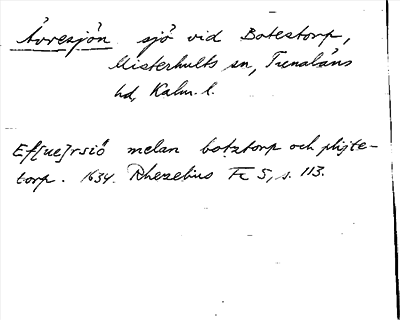 Åvresjön sjö vid Botestorp,
Misterhults sn, Tunaläns
hd, Kalm. l.
Ef[ue]rsiö melan botztorp och phijte-
torp. 1634. Rhezelius Fc 5, s. 113.